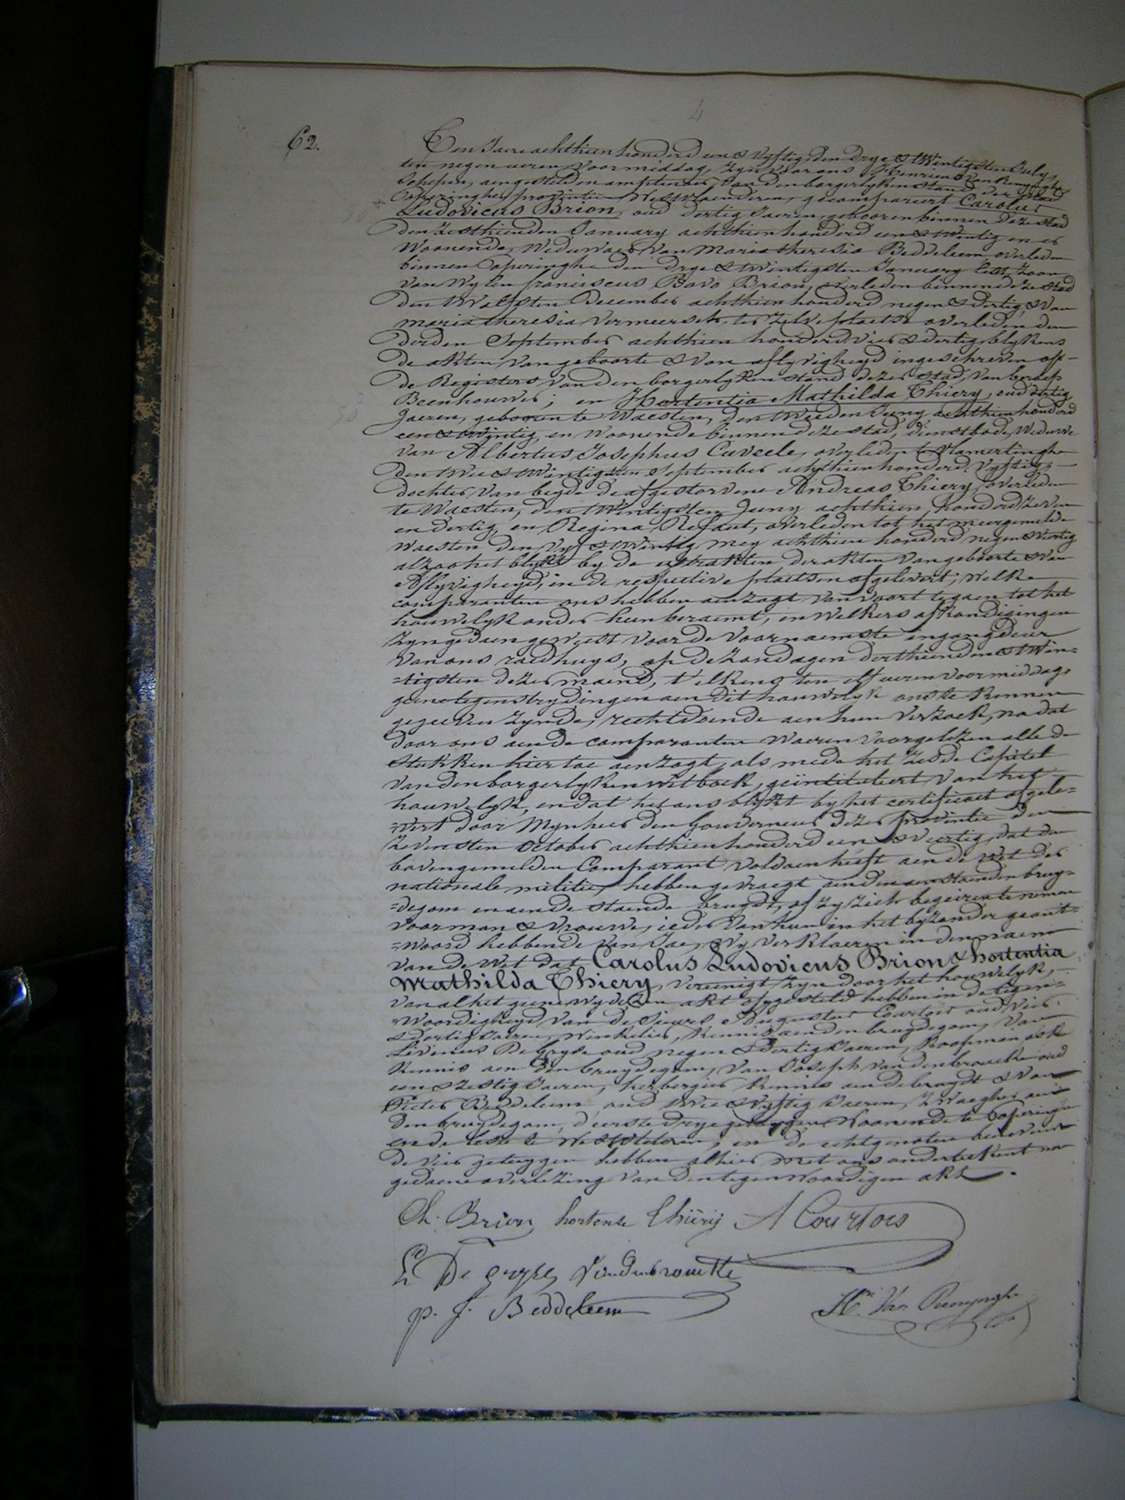 4
62.
Ten Jaere achthien honderd een & vyftig, den drye & twintigsten July,
ten negen ueren voormiddag, zyn voor ons Henricus Van Renynghe
Schepen, aengestelden amptenaer van den borgerlyken stand der stad
Poperinghe, provintie Westvlaenderen, gecompareert Carolus
Ludovicus Brion, oud dertig Jaeren, gebooren binnen deze stad
den zesthienden January achthien honderd een & twintig en er
Woonende, Weduwaer van Maria theresia Beddeleem, overleden
binnen Poperinghe den drye & twintigsten January lest, zoon
van Wylen franciscus Bavo Brion, overleden binnen deze stad
den twelfsten December achthien honderd negen & dertig, & van
maria theresia Vermeersch, ter zelve plaetse overleden den
derden September achthien honderd vier & dertig blykens
de akten van geboorte & van aflyvigheyd ingeschreven op-
de Registers van den borgerlyken stand dezer stad, van beroep
Beenhouwer; en Hortentia Mathilda Thiery, oud dertig
Jaeren, gebooren te Waesten, den tweeden Juny achthien honderd
een & twintig, en Woonende binnen deze stad, dienstbode, Weduwe
van Albertus Josephus Cuvele, overleden te Vlamertinghe
den twee & twintigsten September achthien honderd vyftig;
dochter van beyde de afgestorvene Andreas Thiery, overleden
te Waesten, den twintigsten Juny achthien honderd zeven
en dertig, en Regina Refaut, overleden tot het meergemelde
Waesten den vyf & twintig mey achthien honderd negen & veertig
alzoo het blykt by de extrakten der akten van geboorte & van
Aflyvigheyd, in de respective plaetsen afgelevert; welke
comparanten ons hebben aenzogt van voort te gaen tot het
houwelyk onder hun beraemt, en welkers afkondigingen
zyn gedaen geweest voor de voornaemste ingangdeur
van ons raedhuys, op de zondagen derthienden & twin-
=tigsten dezer maend, t'elkens ten elf ueren voormiddag
geene tegenstrydingen aen dit houwelyk ons te kennen
gegeven zynde, rechtdoende aen hun verzoek, na dat
door ons aen de comparanten waeren voorgelezen alle de
stukken hier toe aenzogt, als mede het zesde Capitel
van den borgerlyken wetboek, geïntituleert van het
houwelyk, en dat het ons blykt by het certificaet afgele-
=vert door Mynheer den Gouverneur dezer provintie den
zevensten October achthien honderd een & veertig, dat den
bovengemelden Comparant voldaen heeft aen de wet der
nationale militie, hebben gevraegt aen den aenstaenden bruy-
=degom en aende staende bruydt, of zy zich begeiren te nemen
voor man & vrouwe, ieder van hun in het byzonder geant-
=woord hebbende van Jae, Wy verklaeren in den naem
van de Wet dat Carolus Ludovicus Brion & hortentia
Mathilda Thiery, vereenigt zyn door het houwelyk,
van al het geene wy dezen akt opgesteld hebben in de tegen-
=woordigheyd van de Sieurs Augustus Courtois oud vier
& dertig Jaeren, Winkelier, Kennis aen den bruydegom, van
Livinus De Gryse oud negen & dertig Jaeren, Koopman ook
Kennis aen den bruydegom, van Joseph Vandenbroucke oud
een & zestig Jaeren, herbergier Kennis aen de bruydt & van
Pieter Beddeleem, oud twee & vyftig Jaeren, Zwaeger aen
den bruydegom, d'eerste drye getuygen Woonende te Poperinghe
en de leste te Westvleteren; en de echtgenoten benevens
de vier getuygen hebben alhier met ons onderteekent na
gedaene overlezing van den tegenwoordigen akt.
Ch. Brion hortense thiërij A Courtois
L De Gryse Vandenbroucke
p. J. Beddeleem Hri. Van Renynghe